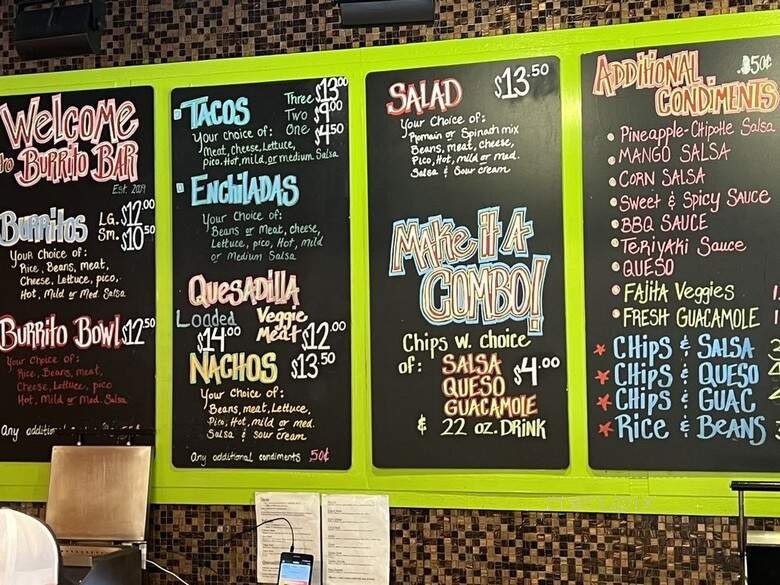 Welcome
to Burrito Bar
Est. 2019
Burritos LG. $12.00
Sm. $10.50
Your Choice of:
Rice, Beans, meat,
Cheese, Lettuce, pico,
Hot, Mild or Med. Salsa
Burrito Bowl $12.50
Your Choice of:
Rice, Beans, meat,
Cheese, Lettuce, pico
Hot, Mild or Med. Salsa
Any
Tacos Three $13.00
Two $9.00
One $4.50
Your choice of:
Meat, Cheese, Lettuce,
pico, Hot, mild, or medium Salsa
Enchiladas
Your Choice of:
Beans or Meat, cheese,
Lettuce, pico, Hot, mild
or Medium Salsa
Quesadilla
Loaded $14.00
Veggie
Meat $12.00
Nachos $13.50
Your Choice of:
Beans, meat, Lettuce,
Pico, Hot, mild or med.
Salsa & sour cream
Any additional condiments .50¢
Salad $13.50
Your Choice of:
Romain or Spinach mix
Beans, meat, cheese,
Pico, Hot, mild or med.
Salsa & Sour cream
Make it A
Combo!
Chips w. choice
of: Salsa
Queso
Guacamole
$4.00
& 22 oz. Drink
Additional .50¢
Condiments
Pineapple-Chipotle Salsa
Mango Salsa
Corn Salsa
Sweet & Spicy Sauce
BBQ Sauce
Teriyaki Sauce
Queso
Fajita Veggies
Fresh Guacamole
Chips & Salsa
Chips & Queso
Chips & Guac
Rice & Beans